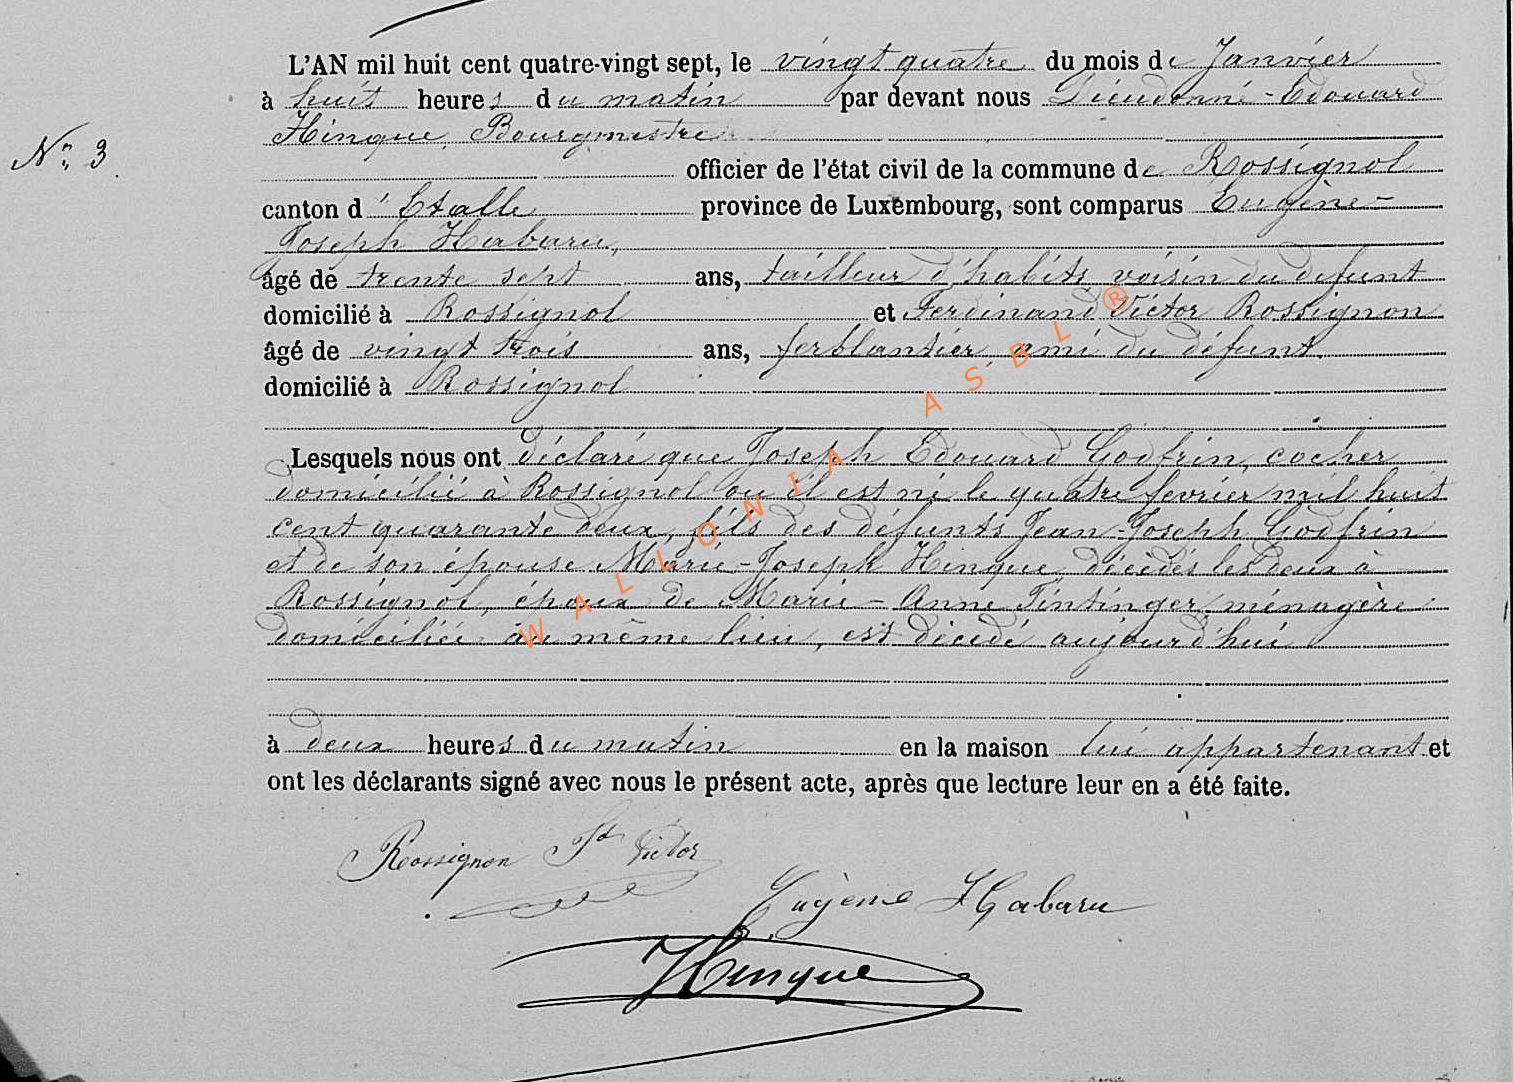 L'AN mil huit cent quatre-vingt sept, le vingt quatre du mois de Janvier
à huit heures du matin par devant nous Dieudonné-Edouard
Hinque, Bourgmestre
N° 3.
officier de l'état civil de la commune de Rossignol
canton d'Etalle province de Luxembourg, sont comparus Eugène-
Joseph Habaru,
âgé de trente sept ans, tailleur d'habits, voisin du défunt
domicilié à Rossignol et Ferdinand Victor Rossignon
âgé de vingt trois ans, ferblantier, ami du défunt.
domicilié à Rossignol
Lesquels nous ont déclaré que Joseph Edouard Godfrin, cocher
domicilié à Rossignol où il est né le quatre fevrier mil huit
cent quarante deux, fils des défunts Jean-Joseph Godfrin
et de son épouse Marie-Joseph Hinque, décédés les deux à
Rossignol, époux de Marie-Anne Tintinger, ménagère
domiciliée au même lieu, est décédé aujourd'hui
à deux heures du matin en la maison lui appartenant et
ont les déclarants signé avec nous le présent acte, après que lecture leur en a été faite.
Rossignon Fd Victor
Eugène Habaru
Hinque
WALLONIA ASBL ®